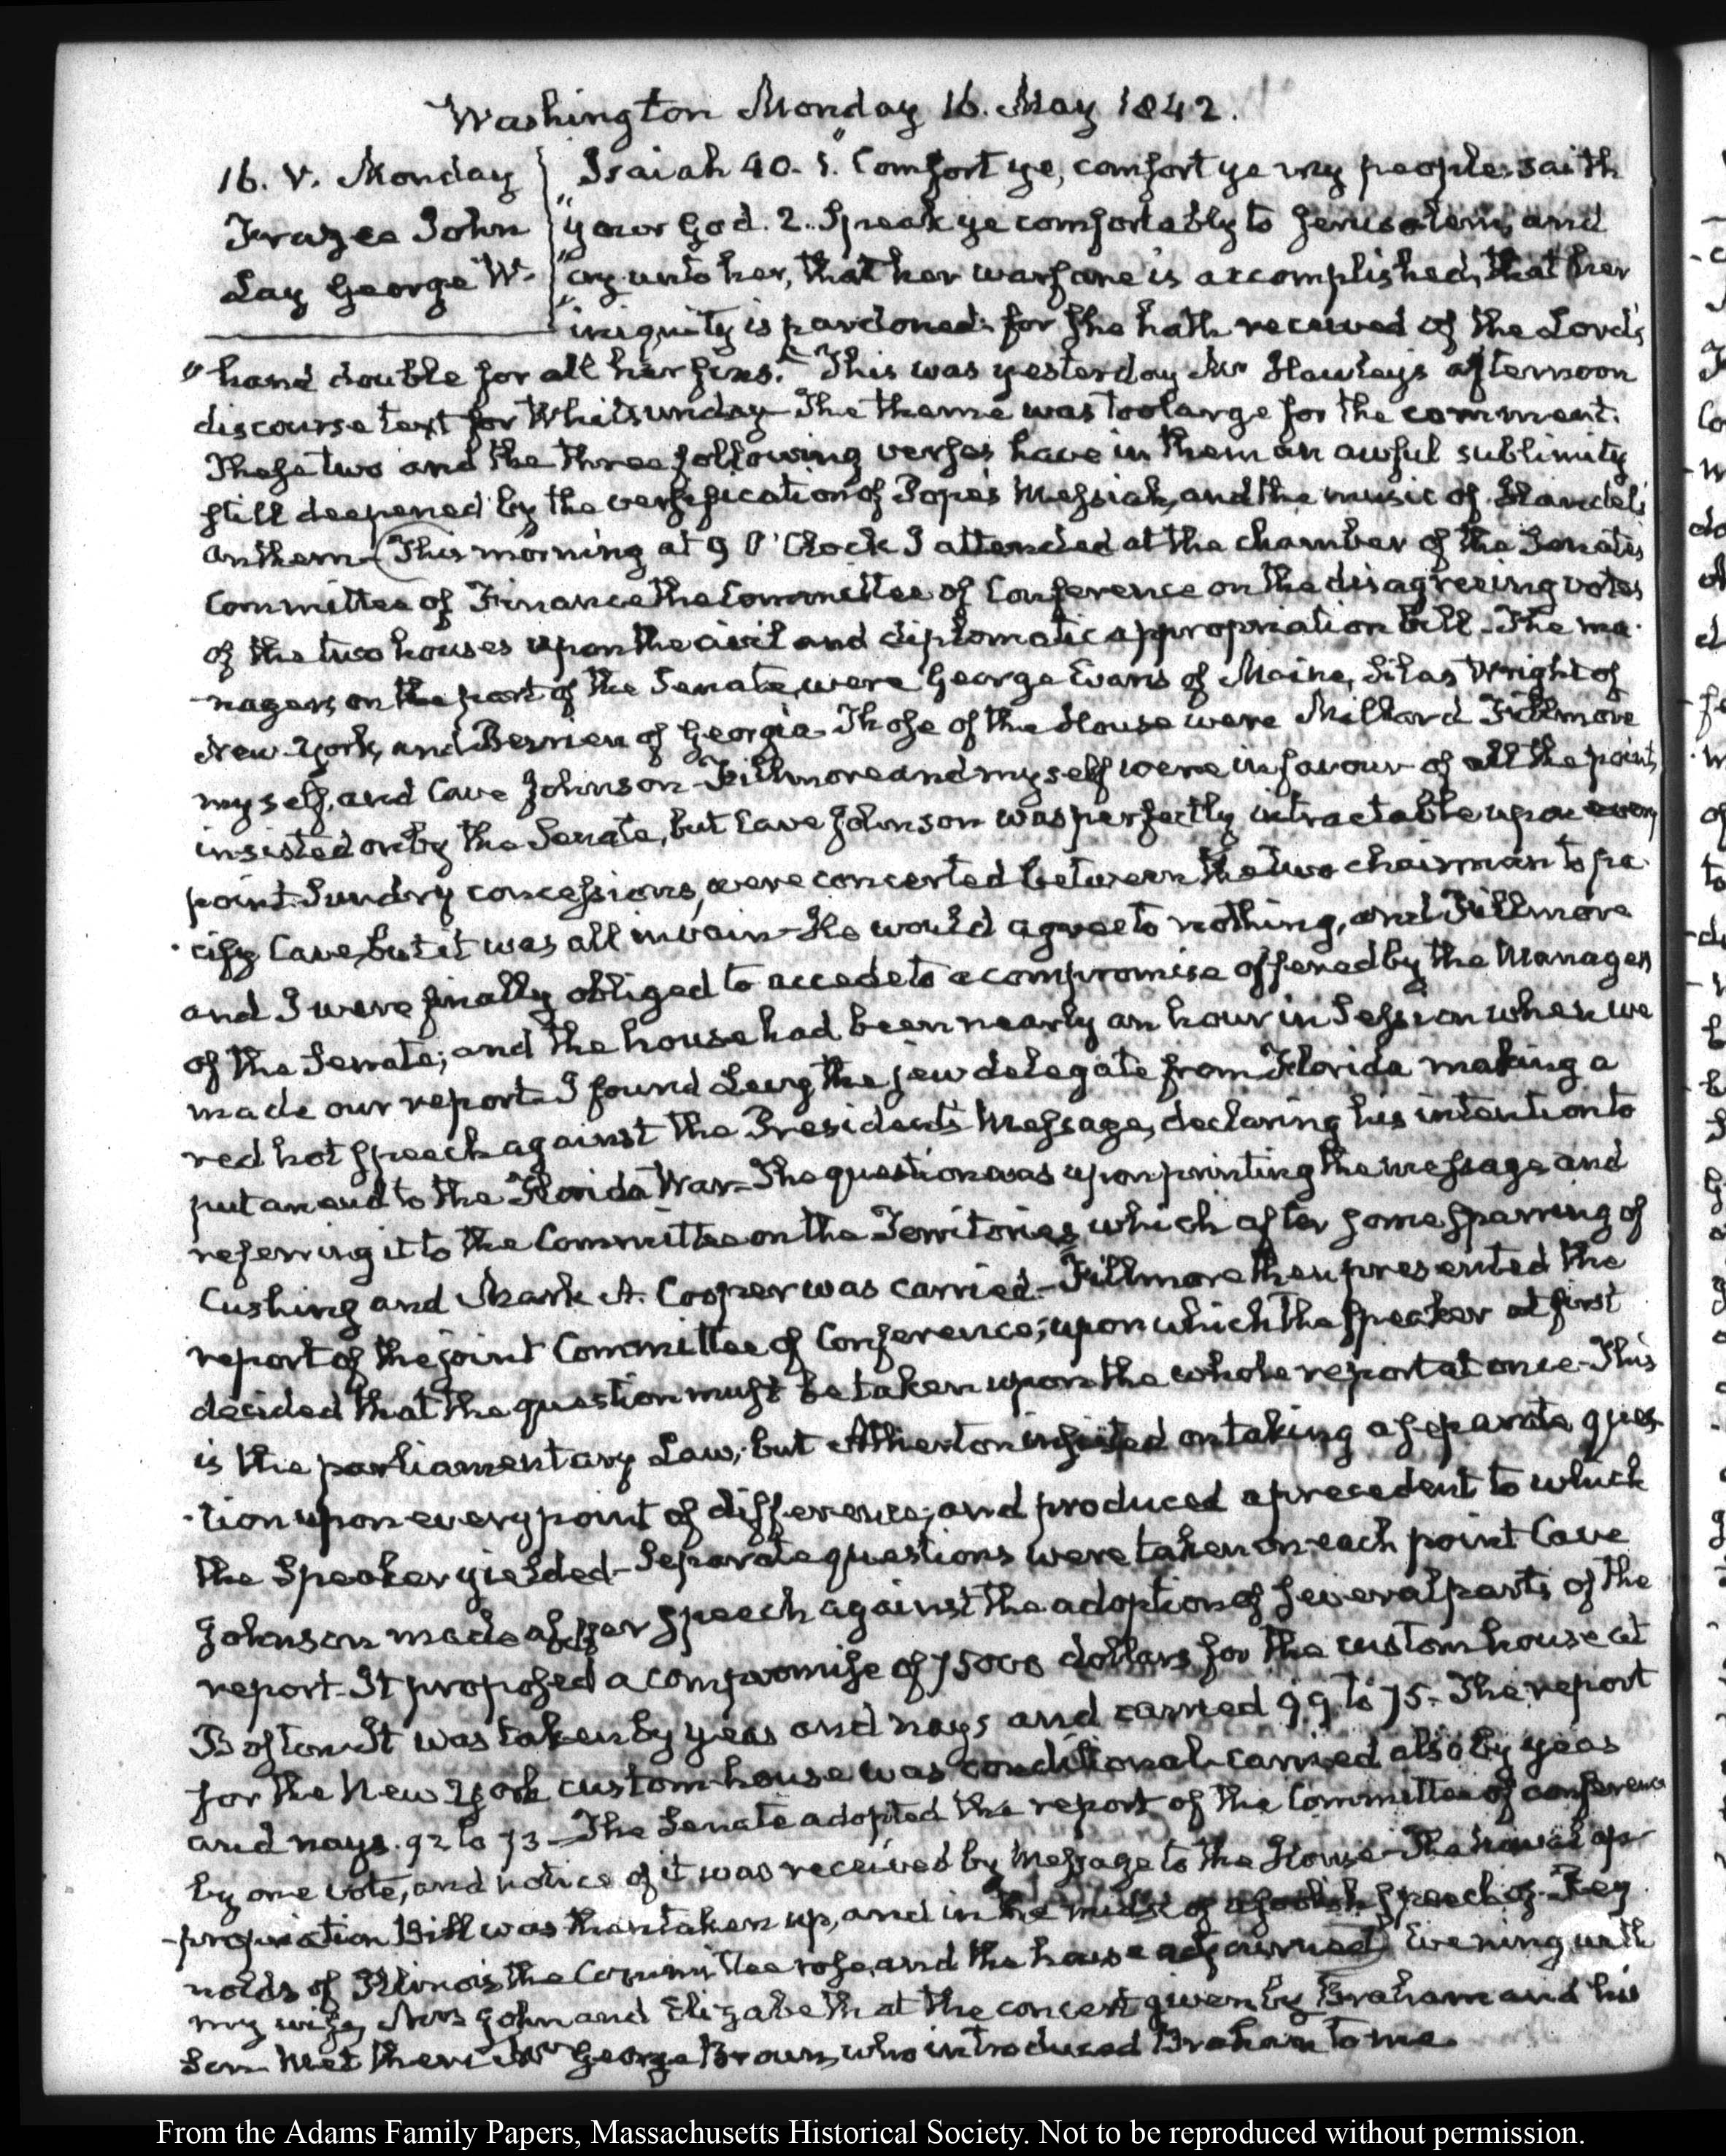 Washington Monday 16. May 1842.
16. V. Monday
Frazee John
Lay George W.
Isaiah 40. 1. "Comfort ye, comfort ye my people, saith
"your God. 2. Speak ye comfortably to Jerusalem, and
"cry unto her, that her warfare is accomplished, that her
"iniquity is pardoned: for she hath received of the Lord's
"hand double for all her sins." This was yesterday Mr Hawley's afternoon
discourse text for Whitsunday– The theme was too large for the comment.
These two and the three following verses have in them an awful sublimity
still deepened by the versification of Pope's Messiah, and the music of Handel's
anthem– (This morning at 9 O'Clock I attended at the chamber of the Senate's
Committee of Finance the Committee of Conference on the disagreeing votes
of the two houses upon the civil and diplomatic appropriation bill– The ma-
-nagers on the part of the Senate, were George Evans of Maine, Silas Wright of
New-York, and Berrien of Georgia– Those of the House were Millard Fillmore
myself, and Cave Johnson– Fillmore and myself were in favour of all the points
insisted on by the Senate, but Cave Johnson was perfectly intractable upon every
point. Sundry concessions, were concerted between the two chairman to pa-
-cify Cave, but it was all in vain– He would agree to nothing, and Fillmore
and I were finally obliged to accede to a compromise offered by the Managers
of the Senate; and the house had been nearly an hour in Session when we
made our report– I found Levy the jew delegate from Florida making a
red hot speech against the President's Message, declaring his intention to
put an end to the Florida War– The question was upon printing the message and
referring it to the Committee on the Territories, which after some sparring of
Cushing and Mark A. Cooper was carried– Fillmore then presented the
report of the joint Committee of Conference; upon which the Speaker at first
decided that the question must be taken upon the whole report at once– This
is the parliamentary Law; but Atherton insisted on taking a separate ques-
-tion upon every point of difference; and produced a precedent to which
the Speaker yielded– Separate questions were taken on each point Cave
Johnson made a speech against the adoption of several parts of the
report– It proposed a compromise of 75000 dollars for the custom house at
Boston– It was taken by yeas and nays and carried 99 to 75– The report
for the New York custom-house was conditional– carried also by yeas
and nays. 92 to 73– The Senate adopted the report of the Committee of conference
by one vote, and notice of it was received by Message to the House– The naval ap-
-propriation Bill was then taken up, and in the midst of a foolish speech of Rey-
nolds of Illinois the Committee rose, and the house adjourned) Evening with
my wife, Mrs John and Elizabeth at the concert given by Braham and his
Son– Met there Mr George Brown, who introduced Braham to me.
From the Adams Family Papers, Massachusetts Historical Society. Not to be reproduced without permission.